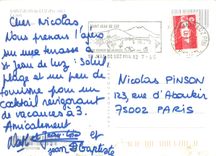 Cher Nicolas,
Nous prenons l'apéro
sur une terrasse à
St Jean de Luz : soleil
plage et un peu de
tourisme pour un
cocktail revigorant
de vacances à 3.
Amicalement
et
Jean Baptiste
Nicolas PINSON
123, rue d'Aboukir
75002 PARIS